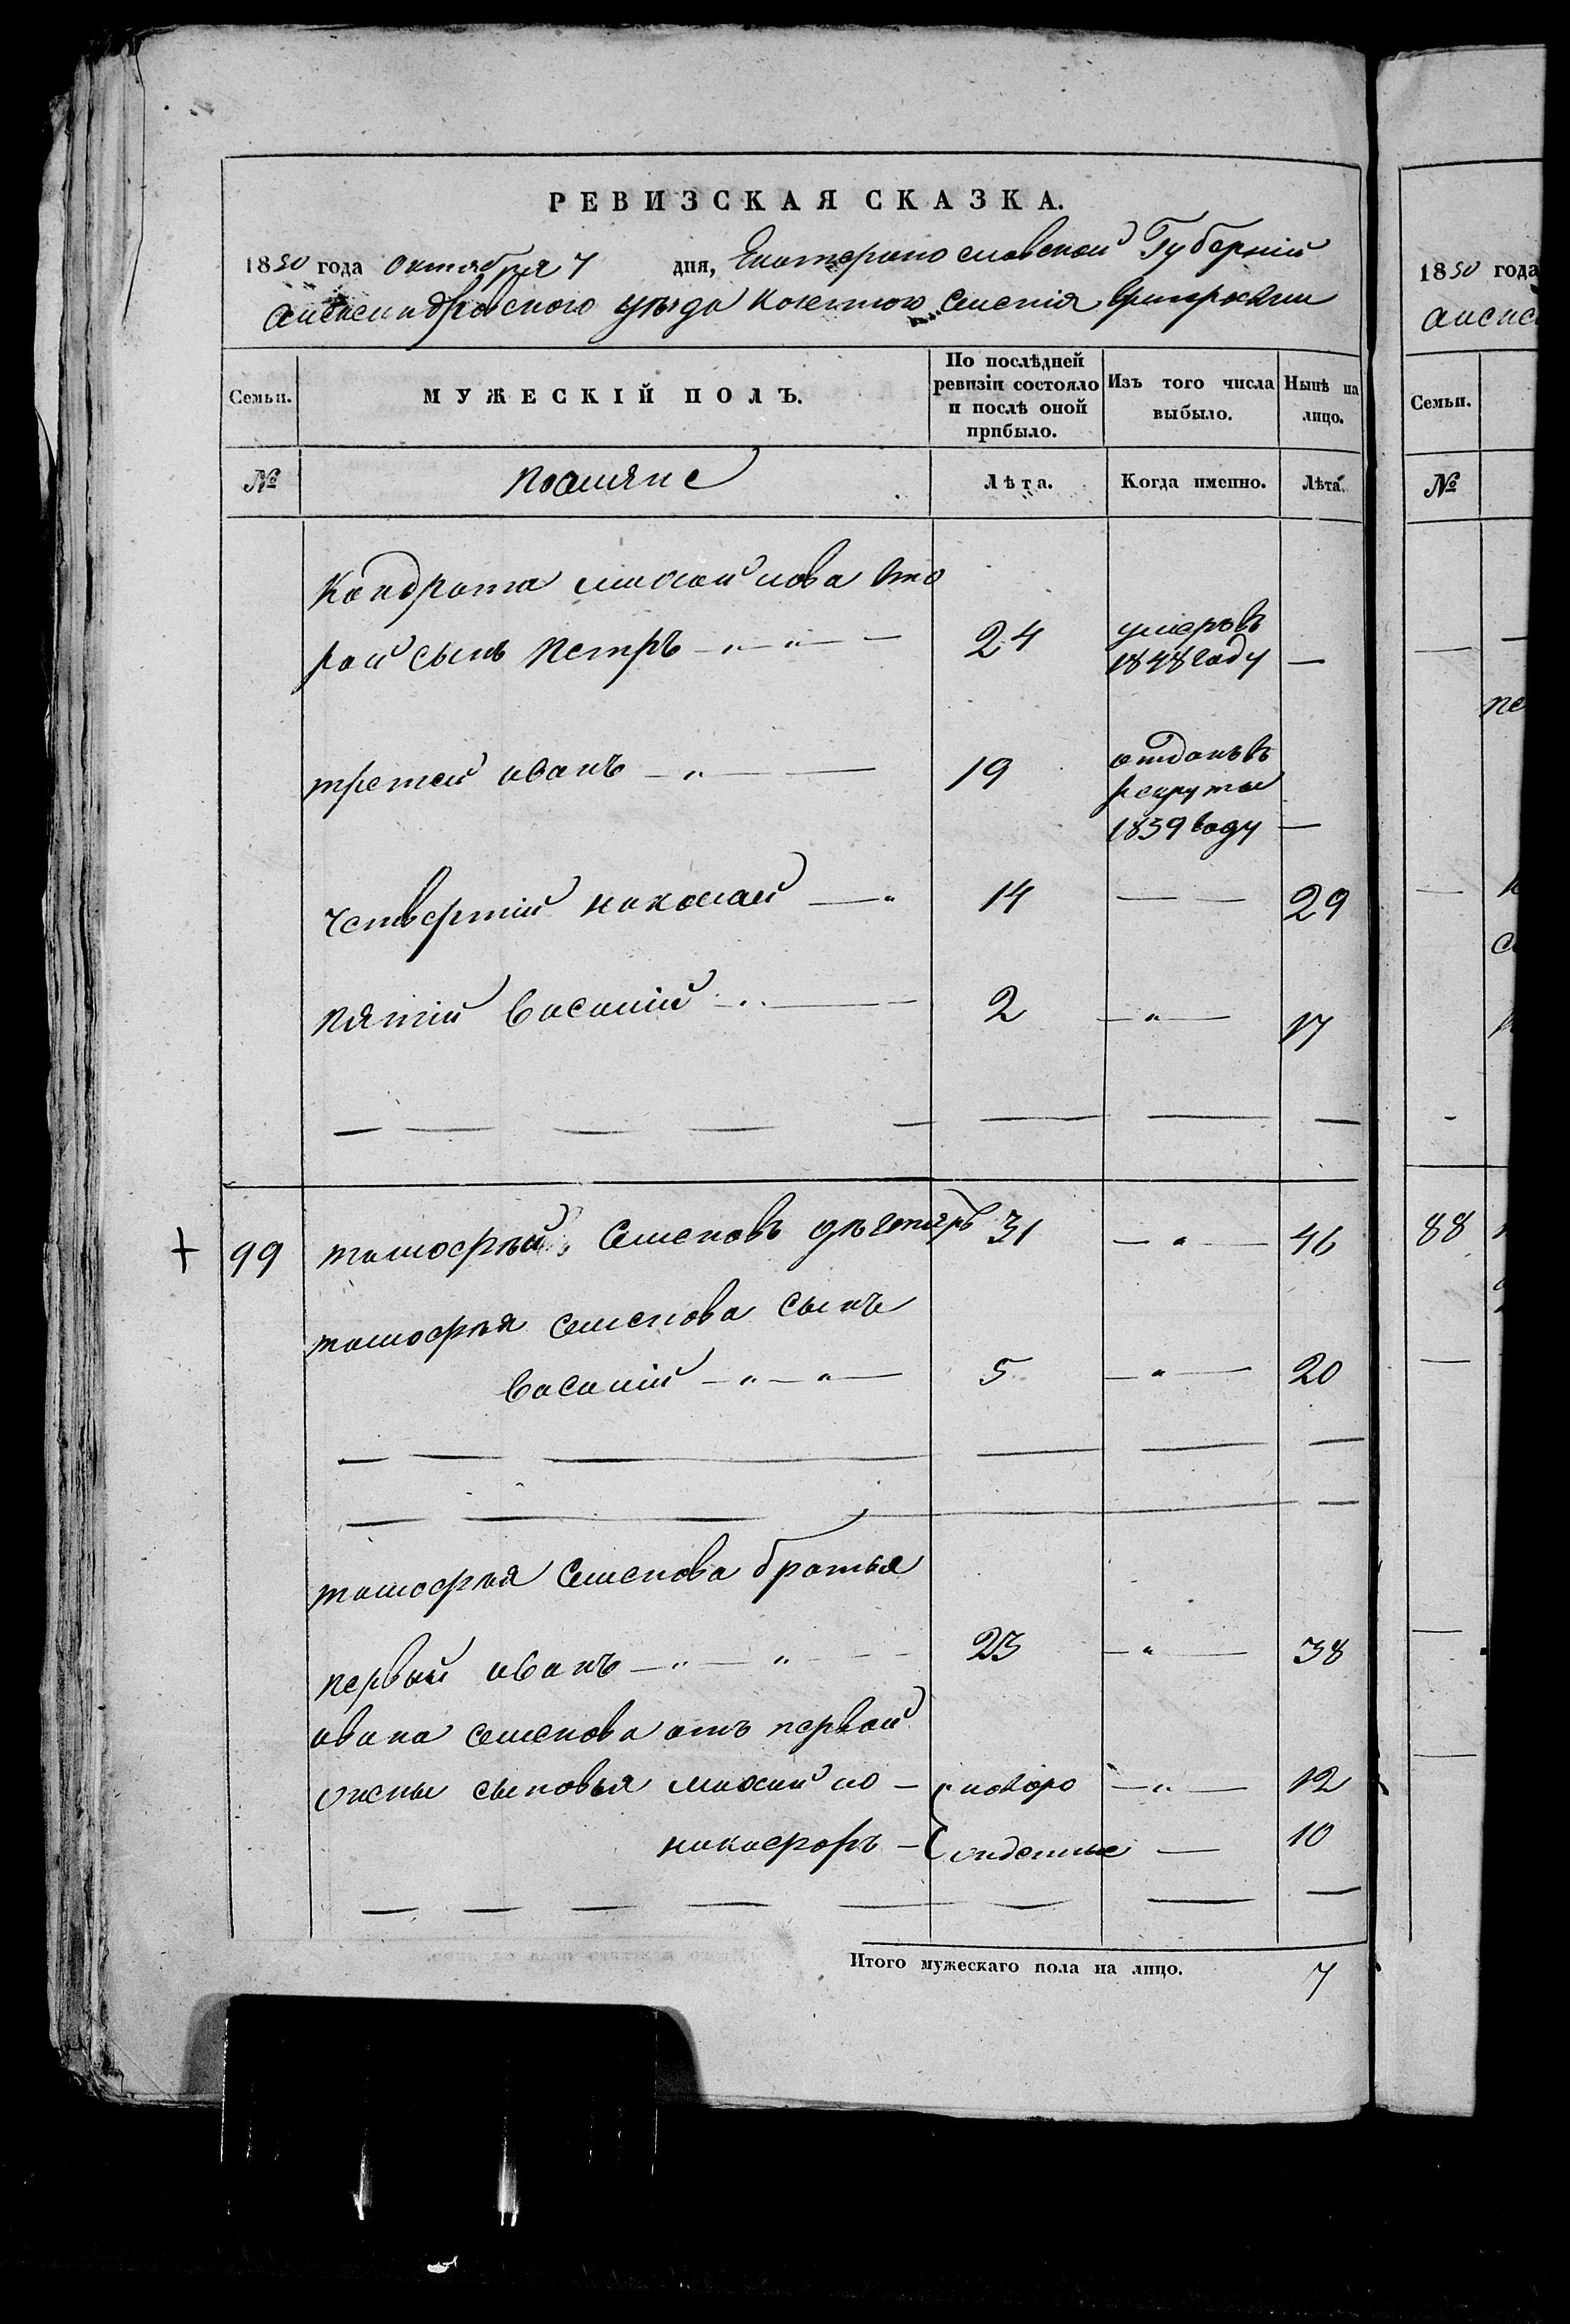 РЕВИЗСКАЯ СКАЗКА.
1850 года октября 7 дня, Екатеринославской Губерніи
Александровского уезда казенного Селенія
Семьи.
МУЖЕСКІЙ ПОЛЪ.
По послѣдней ревизіи состояло и послѣ оной прибыло.
Изъ того числа выбыло.
Нынѣ на лицо.
№
поселяне
Лѣта.
Когда именно.
Лѣта.
Кондрата михайлова вто
рой сынъ петръ 24 умеръ въ 1848 году
третей иванъ 19 отданъ въ рекруты 1839 году
четвертій николай 14 29
пятій василій 2 17
+ 99 тимофѣй Семеновъ дѣгтяръ 31 46
тимофѣя семенова сынъ
василій 5 20
тимофѣя Семенова братья
первый иванъ 23 38
ивана семенова отъ первой
жены сыновья михайло новоро 12
никифоръ жденные 10
Итого мужескаго пола на лицо. 7
1850 года
алекс
Семьи.
№
88